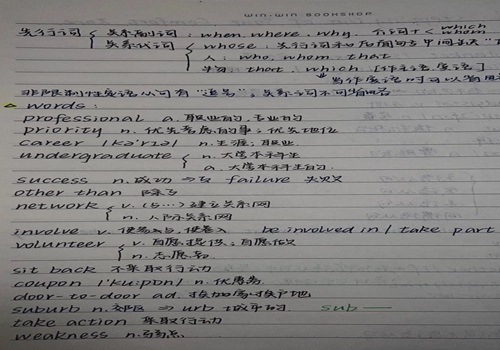 WIN-WIN BOOKSHOP
先行词 { 关系副词: when, where, why, 介词+ < which whom
关系代词 { whose: 先行词和后面句子中间
人: who, whom, that
物: that, which [作主语, 宾语]
当作宾语时可以省略
非限制性定语从句有"逗号", 关系词不可省略
words:
professional a. 职业的, 专业的
priority n. 优先考虑的事; 优先地位
career /kə'rɪə/ n. 生涯, 职业
undergraduate { n. 大学本科生
a. 大学本科生的
success n. 成功 failure 失败
other than 除了
network { v. (与…) 建立关系网
n. 人际关系网
involve v. 使参与, 使卷入 be involved in / take part
volunteer { v. 自愿提供; 自愿做
n. 志愿者
sit back 不采取行动
coupon /'ku:pɒn/ n. 优惠券
door-to-door ad. 挨家挨户地
suburb n. 郊区 urb 城市的 sub—
take action 采取行动
weakness n. 弱点